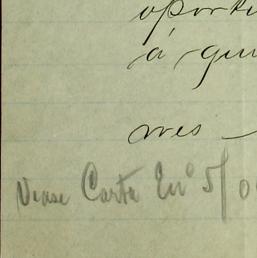 oportu
á qui
mes
Vease Carta En° 5/0